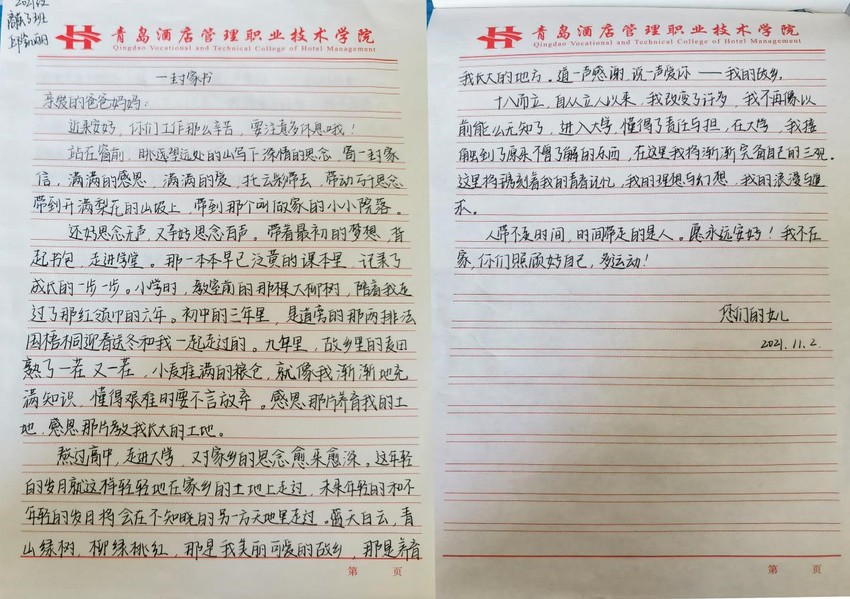 2021级
青岛酒店管理职业技术学院
Qingdao Vocational and Technical College of Hotel Management
一封家书
亲爱的爸爸妈妈：
近来安好，你们工作那么辛苦，要注意多休息哦！
站在窗前，眺远望远处的山写下深情的思念，寄一封家
信，满满的感恩，满满的爱，托云彩带去，带动万千思念
带到开满梨花的山坡上，带到那个叫做家的小小院落。
还好思念无声，又幸好思念有声。带着最初的梦想，背
起书包，走进学堂。那一本本早已泛黄的课本里，记录了
成长的一步一步。小学时，教室前的那棵大柳树，陪着我走
过了那红领巾的六年。初中的三年里，是道旁的那两排法
国梧桐迎春送冬和我一起走过的。九年里，故乡里的麦田
熟了一茬又一茬，小麦堆满的粮仓，就像我渐渐地充
满知识，懂得艰难的要不言放弃。感恩那片养育我的土
地，感恩那片教我长大的土地。
熬过高中，走进大学，又对家乡的思念愈来愈深。这年轻
的岁月就这样轻轻地在家乡的土地上走过，未来年轻的和不
年轻的岁月将会在不知晓的另一方天地里走过。蓝天白云，青
山绿树，柳绿桃红，那是我美丽可爱的故乡，那是养育
第 页
青岛酒店管理职业技术学院
Qingdao Vocational and Technical College of Hotel Management
我长大的地方。道一声感谢，说一声爱你——我的故乡。
十八而立，自从立人以来，我改变了许多，我不再像以
前能么无知了，进入大学，懂得了责任与担，在大学，我接
触到了原来不得了解的东西，在这里我将渐渐完备自己的三观。
这里将镌刻着我的青春记忆，我的理想与幻想，我的浪漫与缠
人带不走时间，时间带走的是人。愿永远安好！我不在
家，你们照顾好自己，多运动！
您们的女儿
2021.11.2.
第 页